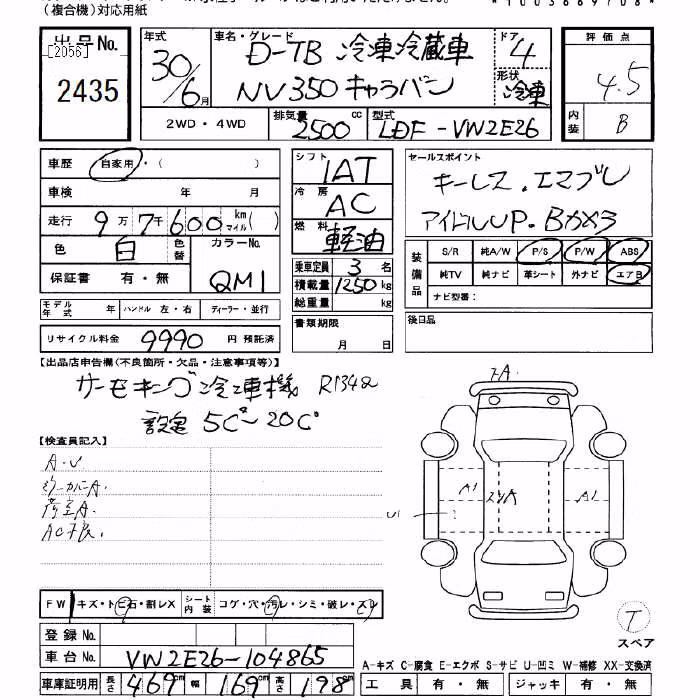 (複合機)対応用紙
出品No.
[2056]
2435
年式
30/6月
車名・グレード
D-TB 冷凍冷蔵車
NV350キャラバン
ドア
4
形状
冷凍
2WD・4WD
排気量
2500cc
型式
LDF-VW2E26
評価点
4.5
内装
B
車歴 自家用・( )
車検 年 月
走行 9万7千600km マイル( )
色 白 色替 カラーNo.
保証書 有・無 QM1
モデル年式 年 ハンドル 左・右 ディーラー・並行
リサイクル料金 9990 円 預託済
シフト 1AT
冷房 AC
燃料 軽油
乗車定員 3 名
積載量 1250 kg
総重量 kg
書類期限
月 日
セールスポイント
キーレス.エマブレ
アイドルUP.Bカメラ
装備品
S/R 純A/W P/S P/W ABS
純TV 純ナビ 革シート 外ナビ エアB
ナビ型番:
後日品
【出品店申告欄(不良箇所・欠品・注意事項等)】
サーモキング冷凍機 R134a
設定 5C°~20C°
【検査員記入】
A.U
荷室A.
AC不良.
7A
A1
A1
U1
T
スペア
FW キズ・トビ石・割レX シート内装 コゲ・穴・汚レ・シミ・破レ・スレ
登録No.
車台No. VW2E26-104865
車庫証明用 長さ 469cm 幅 169cm 高さ 198cm
A-キズ C-腐食 E-エクボ S-サビ U-凹ミ W-補修 XX-交換済
工具 有・無 ジャッキ 有・無